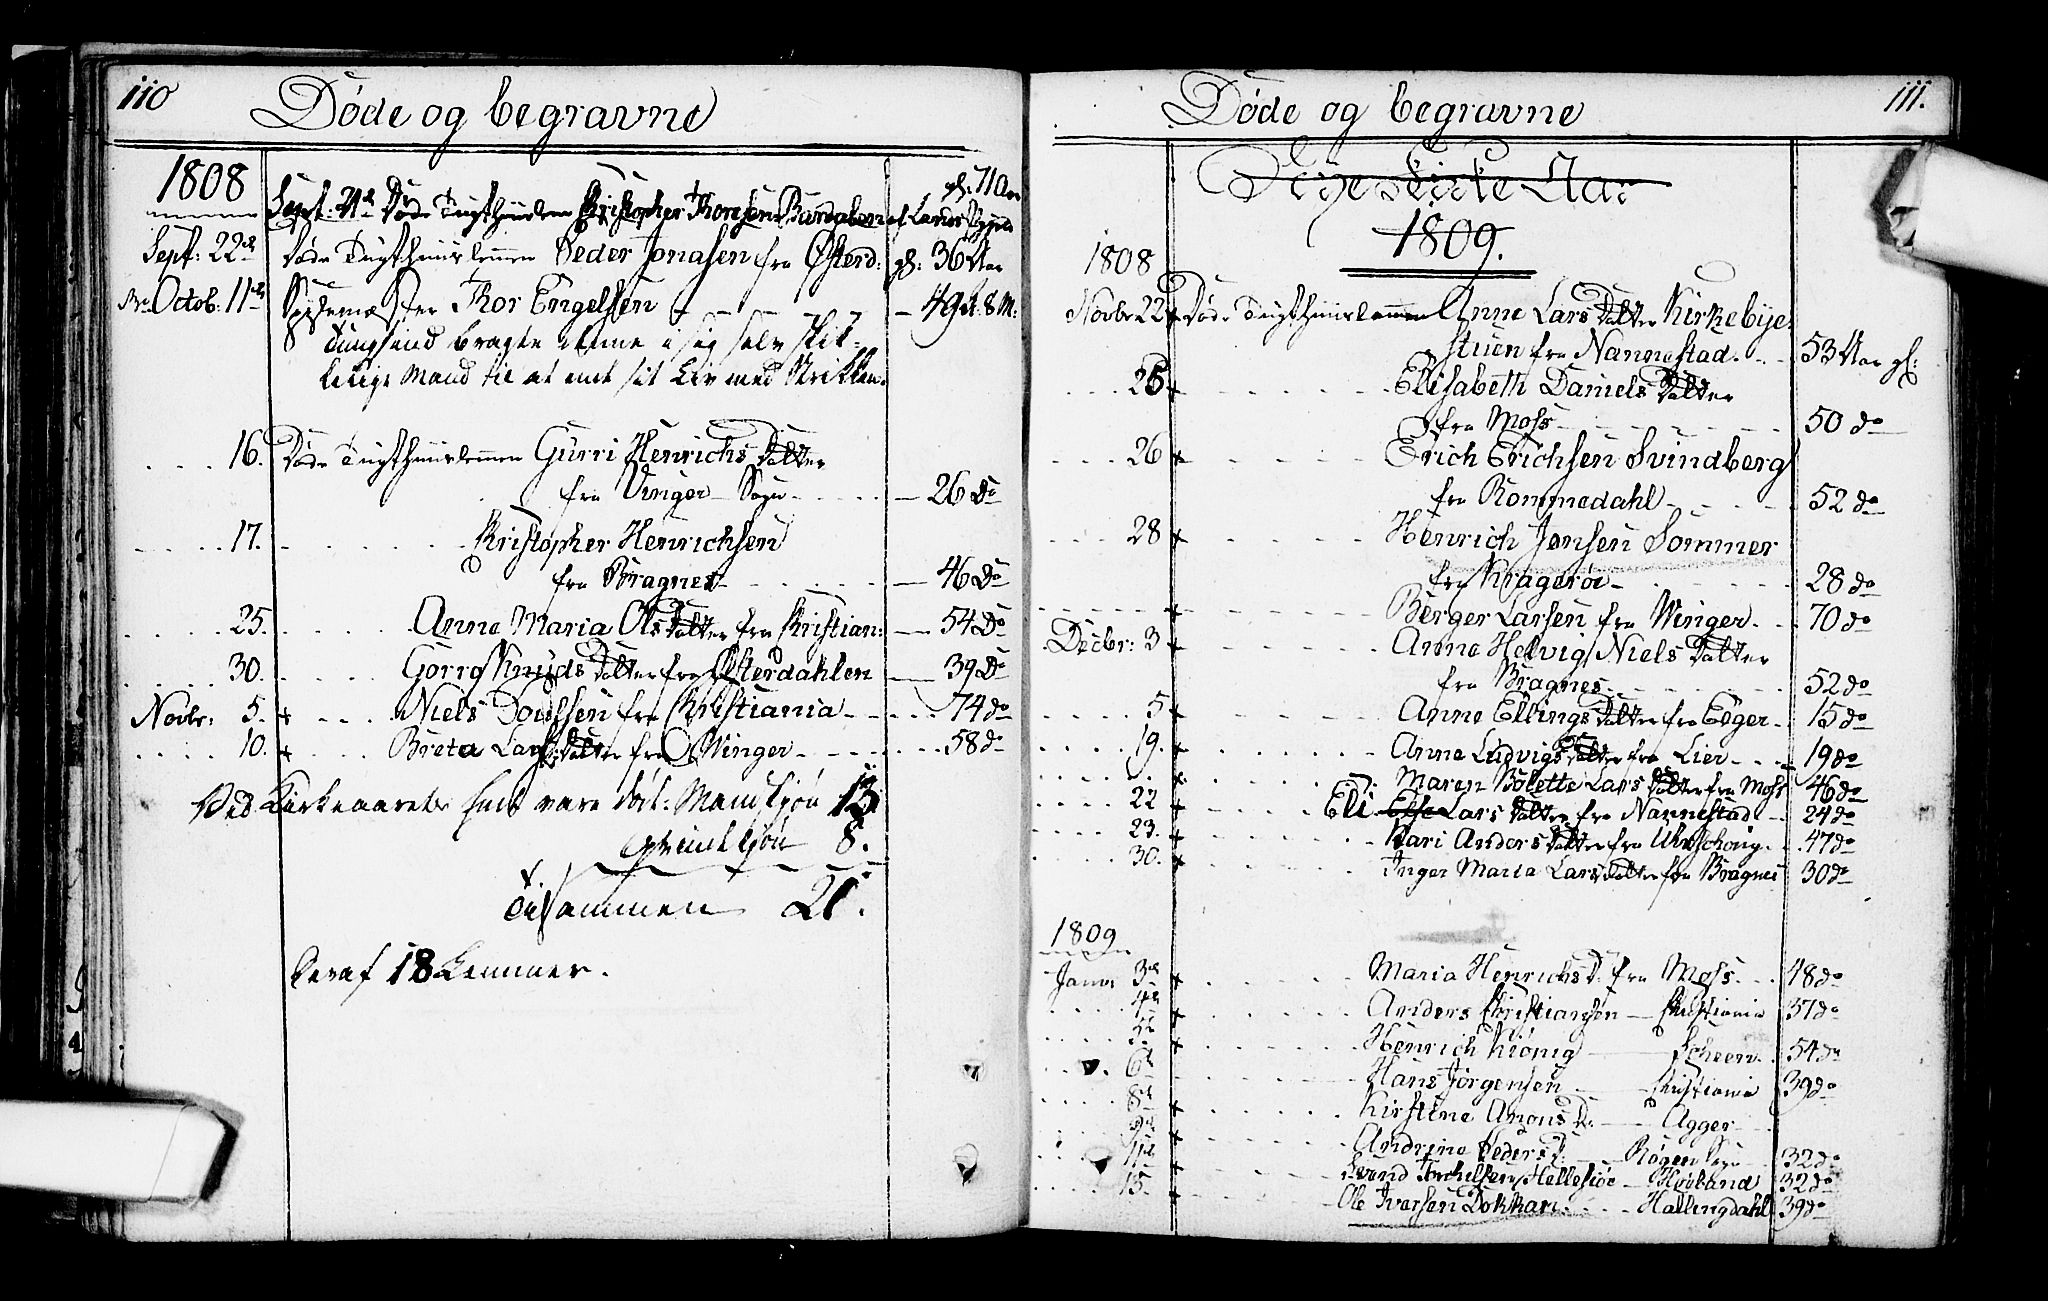 110
Døde og begravne
1808
Sept: 21de Døde Tugthuuslemmen Kristopher Thoresen Bardalen af Lands Bygd gl: 71 Aar
Sept: 22de Døde Tugthuuslemmen Peder Jonasen fra Østerd: gl: 36 Aar
Octob: 11te Spisemæster Thor Engelsen — 49 A: 8 M:
Tungsind bragte denne i sig selv skik-
kelige Mand til at ende sit Liv med Strikken.
16. Døde Tugthuuslemmen Gurri Henrichs Datter
fra Vinger Sogn — 26 Do
17. Kristopher Henrichsen
fra Bragnes — 46 Do
25. Anne Maria Ols Datter fra Kristian: — 54 Do
30. Gorro Knuds Datter fra Østerdahlen — 39 Do
Novbr: 5. + Niels Poulsen fra Kristiania — 74 do
10. + Breta Lars Datter fra Winger — 58 do
Ved Kirkeaarets Ende vare døde: Mandkjøn 13
Qvindekjøn 8.
Tilsammen 21.
Deraf 18 Lemmer.
Døde og begravne
111.
Nye Kirke Aar
1809.
1808
Novbr 22 + Døde Tugthuuslemmen Anne Lars Datter Kirkebye-
stuen fra Nannestad. 53 Aar gl:
25 + Elisabeth Daniels Datter
fra Moss 50 do
26 + Erich Erichsen Svindberg
fra Rommedahl 52 do
28 + Henrich Jensen Sommer
fra Kragerøe 28 do
+ Berger Larsen fra Winger 70 do
Decbr: 3 + Anne Helvig Niels Datter
fra Bragnes 52 do
5 + Anne Ellings Datter fra Eger 15 do
19. + Anne Ludvigs Datter fra Lier 19 do
+ Maren Bolette Lars Datter fra Moss 46 do
22 + Eli Else Lars Datter fra Nannestad 24 do
23. + Kari Anders Datter fra Urschoug 47 do
30. + Inger Maria Lars Datter fra Bragnes 30 do
1809
Janv: 3de + Maria Henrichs D: fra Moss 48 do
4de + Anders Kristiansen — Christiania 37 do
5te + Henrich Kiönig — Scheen 54 do
6te Hans Jørgensen — Christiania 39 do
8de + Kirstine Arons D: — Agger
+ Andrine Peders D: — Røgen Sogn 32 do
+ Svend Torkelsen Hellesiøe — Høeland 32 do
15. + Ole Iversen Dokkan — Hallingdahl 39 do